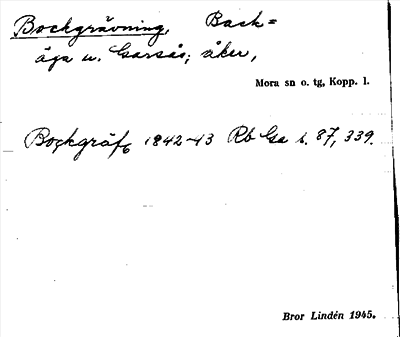 Bockgrävning, Back=
äga u. Garsås; åker,
Mora sn o. tg, Kopp. l.
Bockgräf 1842-43 Rb Ga s. 87, 339.
Bror Lindén 1945.